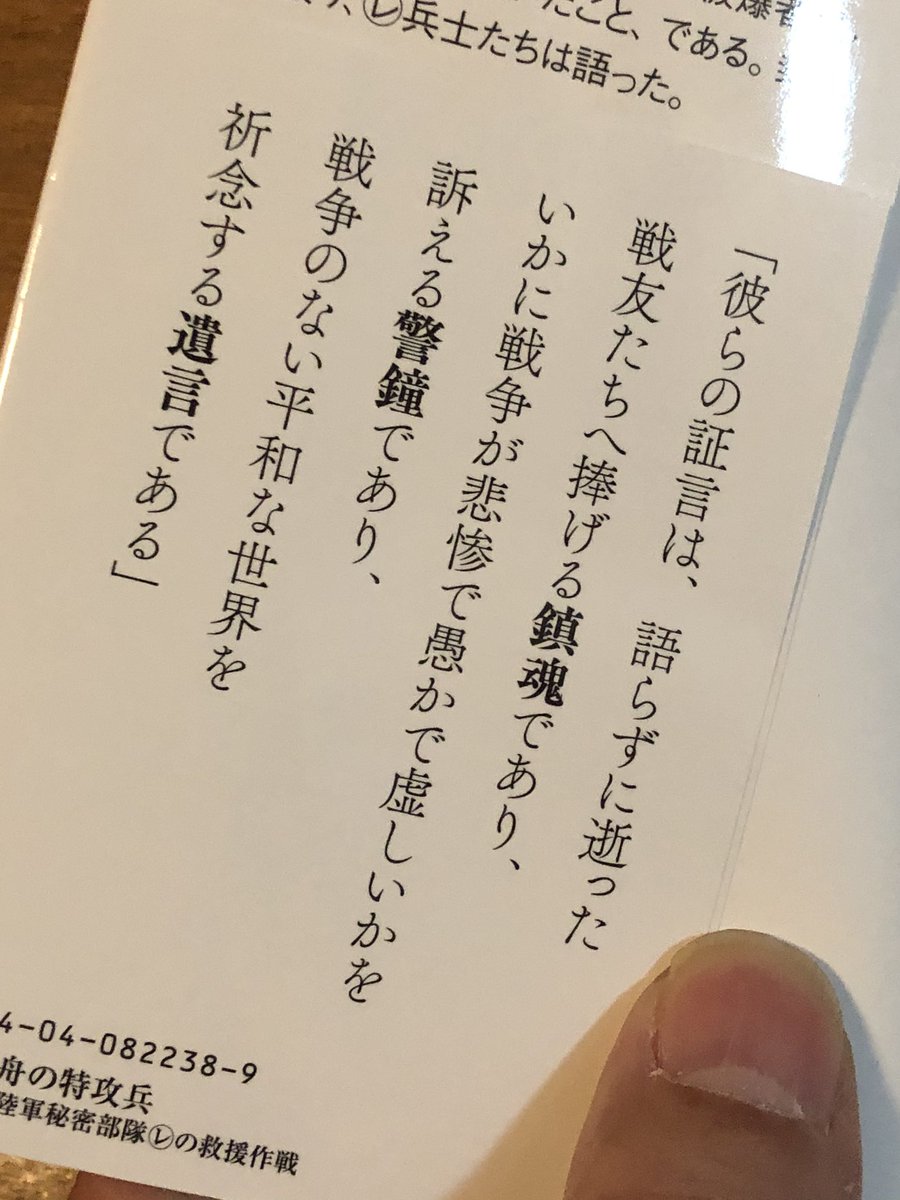 被爆者
たこと、である。
㋹兵士たちは語った。
「彼らの証言は、語らずに逝った
戦友たちへ捧げる鎮魂であり、
いかに戦争が悲惨で愚かで虚しいかを
訴える警鐘であり、
戦争のない平和な世界を
祈念する遺言である」
4-04-082238-9
舟の特攻兵
陸軍秘密部隊㋹の救援作戦